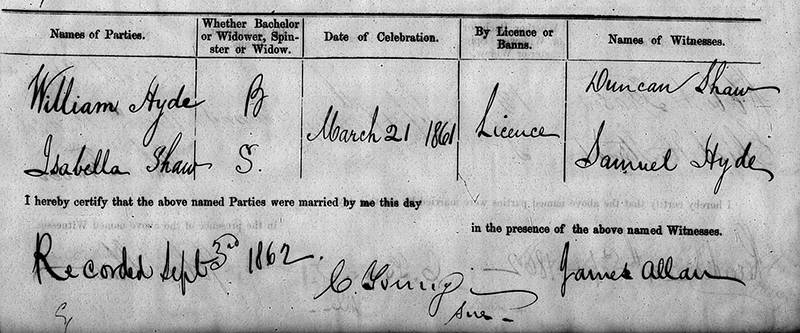 Names of Parties. Whether Bachelor or Widower, Spinster or Widow. Date of Celebration. By Licence or Banns. Names of Witnesses.
William Hyde B Duncan Shaw
March 21 1861 Licence
Isabella Shaw S. Samuel Hyde
I hereby certify that the above named Parties were married by me this day
in the presence of the above named Witnesses.
Recorded Sept 3rd 1862. James Allan
C. Young